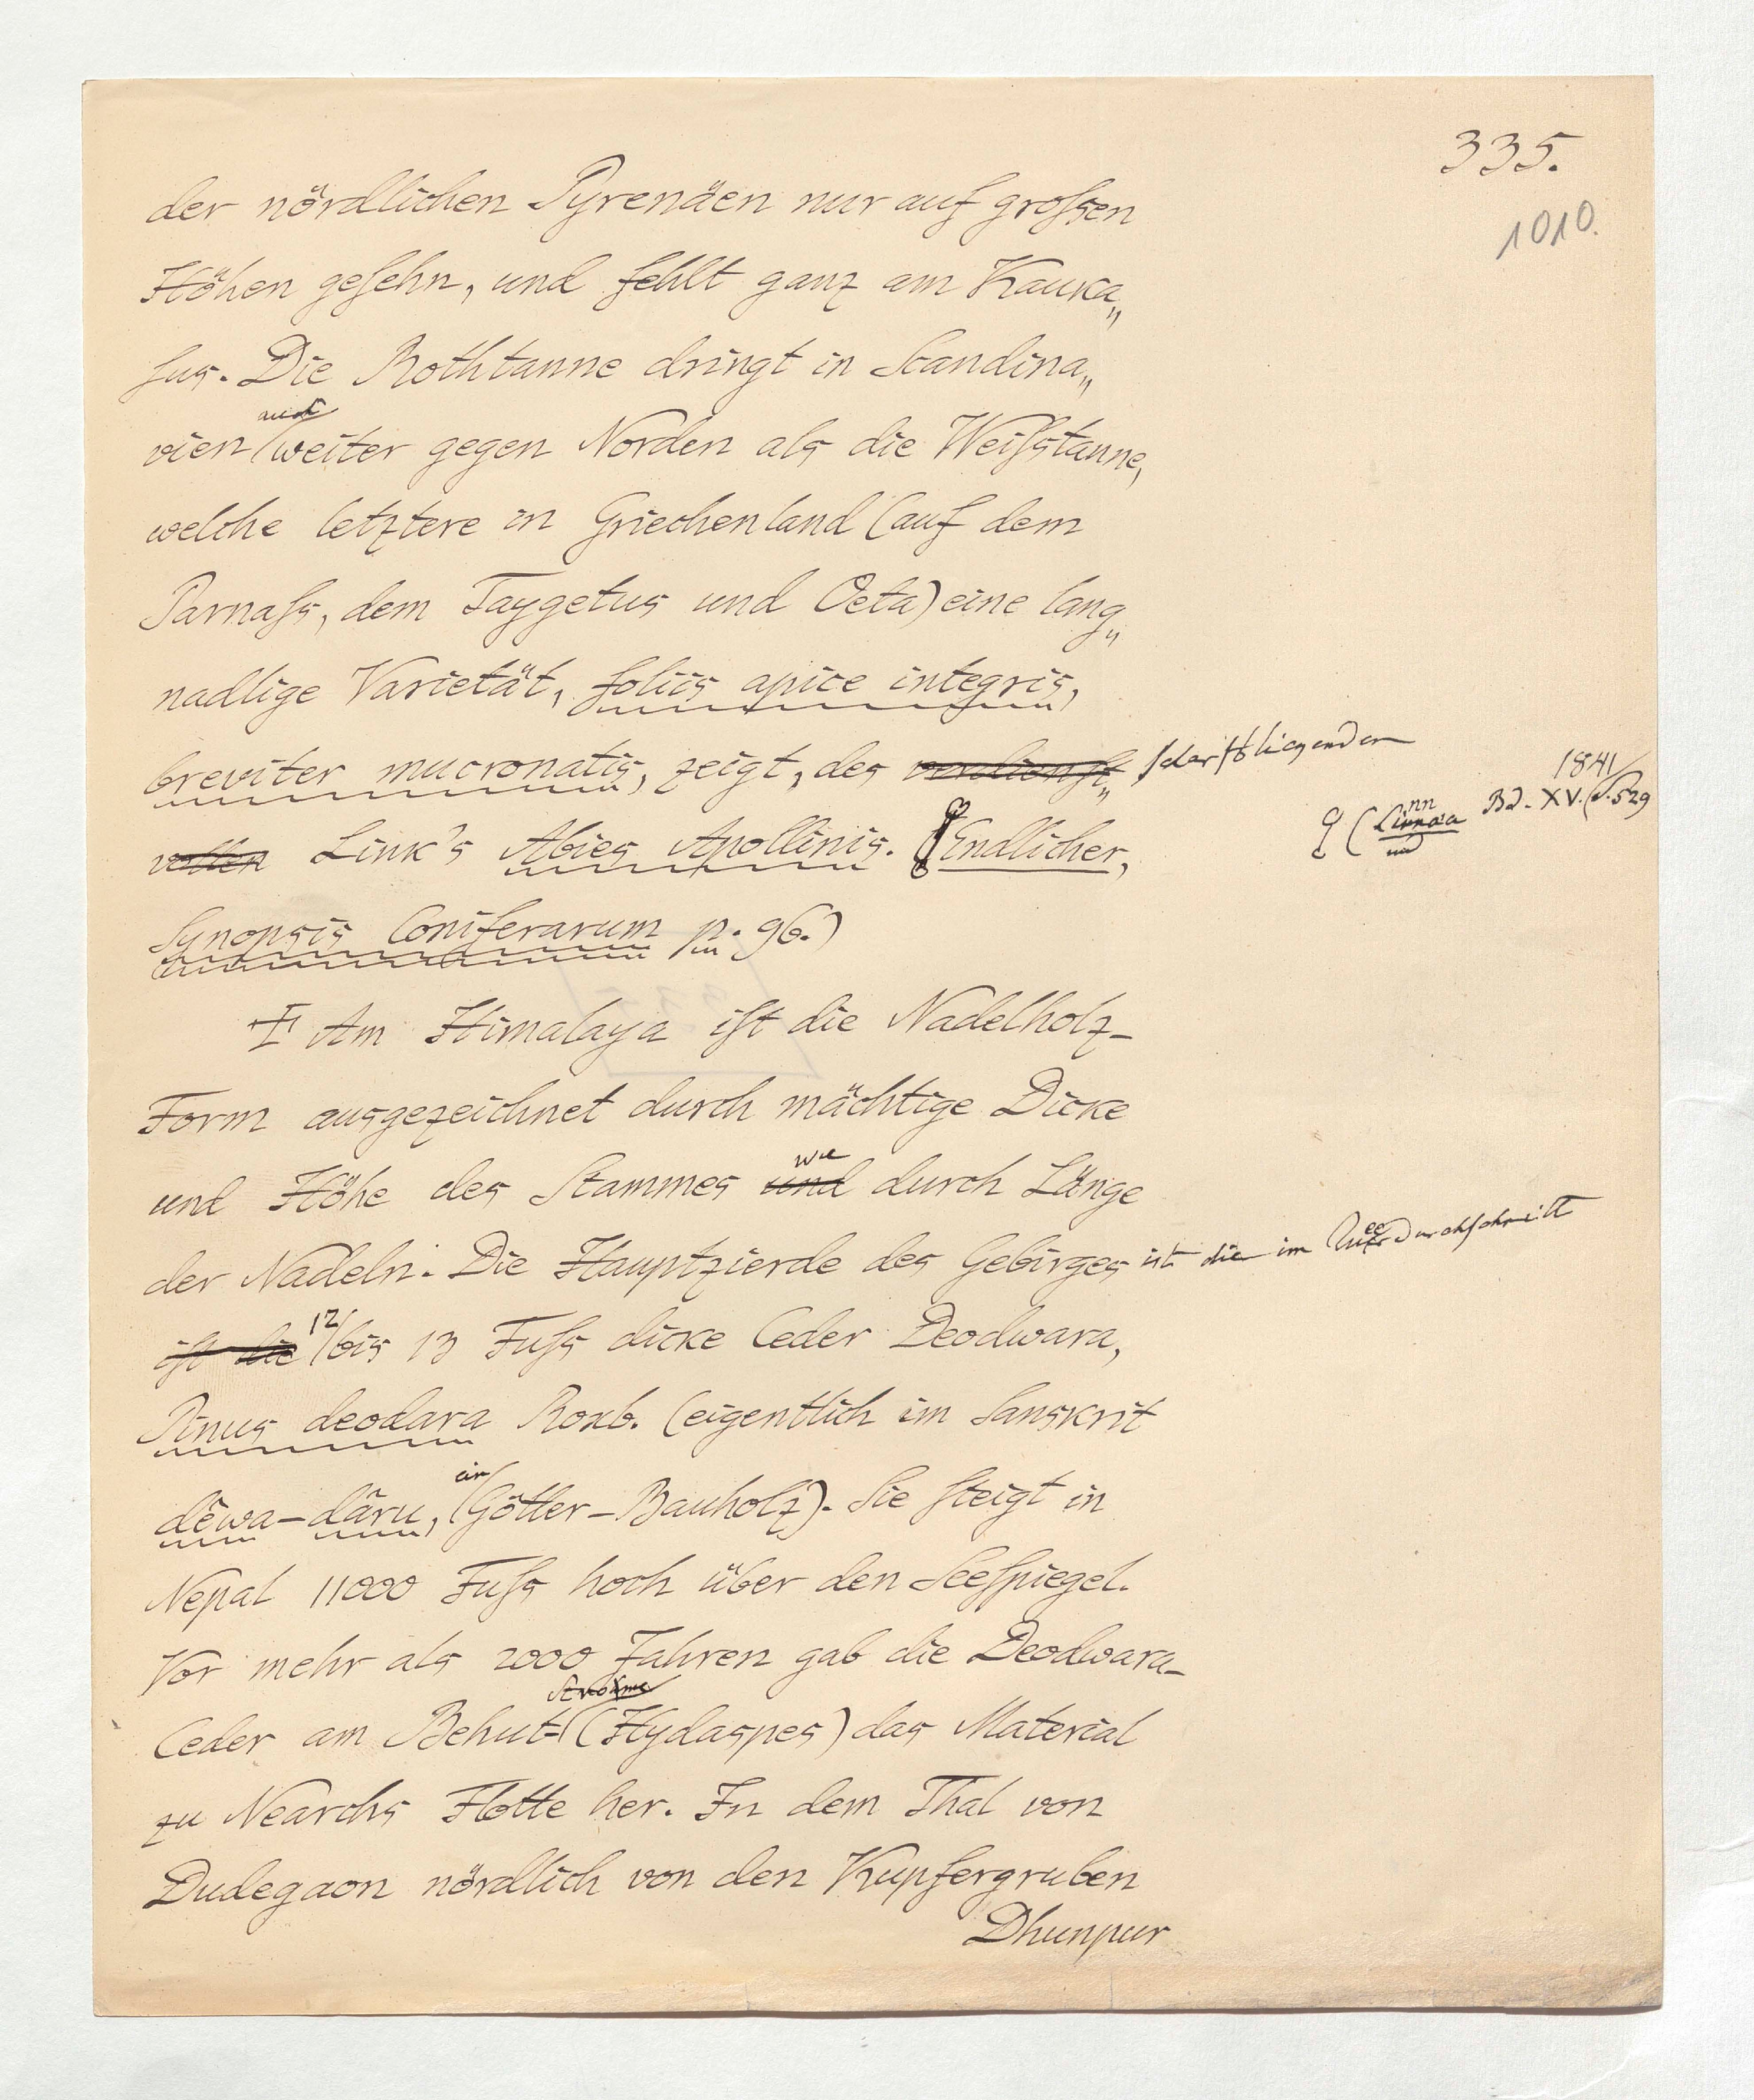 335.
1010.
der nördlichen Pyrenäen nur auf groſsen
Höhen geſehn, und fehlt ganz am Kauka„
ſus. Die Rothtanne dringt in Scandina„
auch
vien weiter gegen Norden als die Weiſstanne,
welche letztere in Griechenland (auf dem
Parnaſs, dem Taygetus und Oeta) eine lang„
nadlige Varietät, foliis apice integris,
breviter mucronatis, zeigt, des verdienſt„ ſcharfblickenden
vollen Link's Abies Apollinis. (Endlicher,
(Linnæa Bd. XV. 1841 S. 529
Synopsis Coniferarum p. 96.)
Am Himalaya iſt die Nadelholz-
Form ausgezeichnet durch mächtige Dicke
wie
und Höhe des Stammes und durch Länge
der Nadeln. Die Hauptzierde des Gebirges ist die im Queerdurchſchnitt
12
iſt die bis 13 Fuſs dicke Ceder Deodwara,
Pinus deodara Roxb. (eigentlich im Sanskrit
ein
dêwa-dâru, Götter-Bauholz). Sie ſteigt in
Nepal 11000 Fuſs hoch über den Seeſpiegel.
Vor mehr als 2000 Jahren gab die Deodwara-
Strome
Ceder am Behut- (Hydaspes) das Material
zu Nearchs Flotte her. In dem Thal von
Dudegaon nördlich von den Kupfergruben
Dhunpur